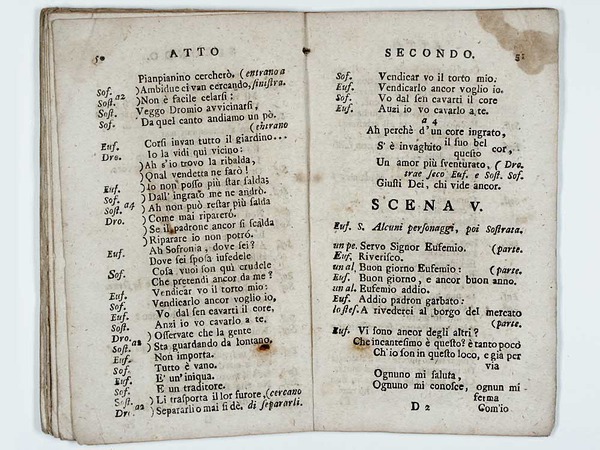 50 ATTO
Pianpianino cercherò. (entrano a
Sof. )Ambidue ci van cercando, sinistra.
Sost. a2 )Non è facile celarsi:
Sost. Veggo Dromio avvicinarsi,
Sof. Da quel canto andiamo un pò.
(entrano
Euf. Corsi invan tutto il giardino...
Dro. Io la vidi quì vicino:
)Ah s'io trovo la ribalda,
)Qual vendetta ne farò!
Euf. )Io non posso più star salda;
Sof. )Dall'ingrato me ne andrò.
Sost. a4 )Ah non può restar più salda
Dro. )Come mai riparerò.
)Se il padrone ancor si scalda
)Riparare io non potrò.
Euf. Ah Sofronia, dove sei?
Dove sei sposa infedele
Sof. Cosa vuoi son quì crudele
Che pretendi ancor da me?
Euf. Vendicar vo il torto mio:
Sof. Vendicarlo ancor voglio io,
Euf. Vo dal sen cavarti il core,
Sof. Anzi io vo cavarlo a te.
Dro. )Osservate che la gente
Sost. a2 )Sta guardando da lontano.
Euf. Non importa.
Sof. Tutto è vano.
Euf. E' un' iniqua.
Sof. E un traditore.
Sost. )Li trasporta il lor furore, (cercano
Dro. a2 )Separarli o mai si dè. di separarli.
SECONDO. 51
Sof. Vendicar vo il torto mio.
Euf. Vendicarlo ancor voglio io.
Sof. Vo dal sen cavarti il core
Euf. Anzi io vo cavarlo a te.
a 4
Ah perchè d'un core ingrato,
S'è invaghito il suo bel cor,
questo
Un amor più sventurato, (Dro.
trae seco Euf. e Sost. Sof.
Giusti Dei, chi vide ancor.
SCENA V.
Euf. S. Alcuni personaggi, poi Sostrata.
un pe. Servo Signor Eufemio. (parte.
Euf. Riverisco.
un al. Buon giorno Eufemio: (parte.
Euf. Buon giorno, e ancor buon anno.
un al. Eufemio addio.
Euf. Addio padron garbato:
lo stes. A rivederci al borgo del mercato
(parte.
Euf. Vi sono ancor degli altri?
Che incantesimo è questo? è tanto poco
Ch'io son in questo loco, e già per
via
Ognuno mi saluta,
Ognuno mi conosce, ognun mi
ferma
D 2 Com'io